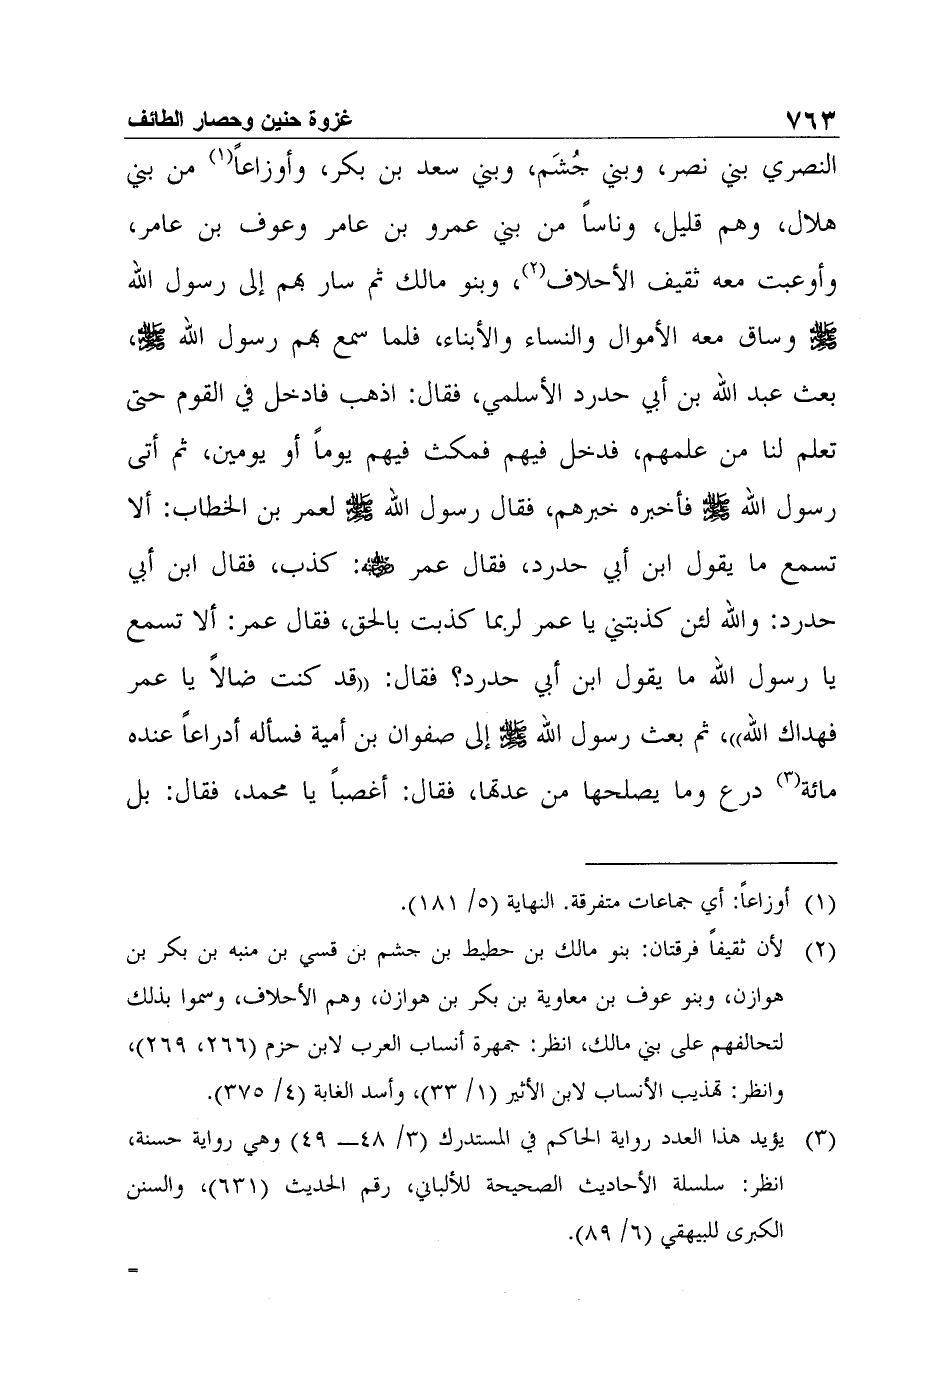 ٧٦٣ غزوة حنين وحصار الطائف
النصري بني نصر، وبني جُشَم، وبني سعد بن بكر، وأوزاعاً(١) من بني
هلال، وهم قليل، وناساً من بني عمرو بن عامر وعوف بن عامر،
وأوعبت معه ثقيف الأحلاف(٢)، وبنو مالك ثم سار بهم إلى رسول الله
ﷺ وساق معه الأموال والنساء والأبناء، فلما سمع بهم رسول الله ﷺ،
بعث عبد الله بن أبي حدرد الأسلمي، فقال: اذهب فادخل في القوم حتى
تعلم لنا من علمهم، فدخل فيهم فمكث فيهم يوماً أو يومين، ثم أتى
رسول الله ﷺ فأخبره خبرهم، فقال رسول الله ﷺ لعمر بن الخطاب: ألا
تسمع ما يقول ابن أبي حدرد، فقال عمر رضي الله عنه: كذب، فقال ابن أبي
حدرد: والله لئن كذبتني يا عمر لربما كذبت بالحق، فقال عمر: ألا تسمع
يا رسول الله ما يقول ابن أبي حدرد؟ فقال: ((قد كنت ضالاً يا عمر
فهداك الله))، ثم بعث رسول الله ﷺ إلى صفوان بن أمية فسأله أدراعاً عنده
مائة(٣) درع وما يصلحها من عدتها، فقال: أغصباً يا محمد، فقال: بل
(١) أوزاعاً: أي جماعات متفرقة. النهاية (٥/ ١٨١).
(٢) لأن ثقيفاً فرقتان: بنو مالك بن حطيط بن جشم بن قسي بن منبه بن بكر بن
هوازن، وبنو عوف بن معاوية بن بكر بن هوازن، وهم الأحلاف، وسموا بذلك
لتحالفهم على بني مالك، انظر: جمهرة أنساب العرب لابن حزم (٢٦٦، ٢٦٩)،
وانظر: تهذيب الأنساب لابن الأثير (١/ ٣٣)، وأسد الغابة (٤/ ٣٧٥).
(٣) يؤيد هذا العدد رواية الحاكم في المستدرك (٣/ ٤٨ــ ٤٩) وهي رواية حسنة،
انظر: سلسلة الأحاديث الصحيحة للألباني، رقم الحديث (٦٣١)، والسنن
الكبرى للبيهقي (٦/ ٨٩).
=